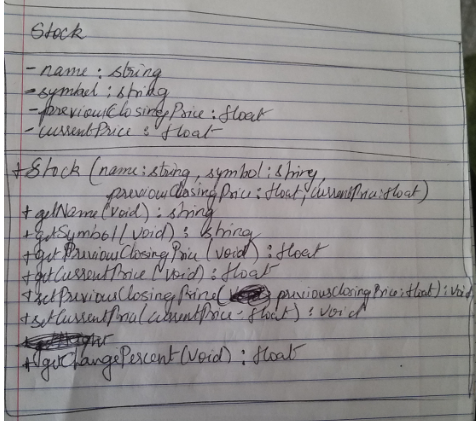 Stock
- name : string
- symbol : string
- previousClosingPrice : float
- currentPrice : float
+ Stock (name : string, symbol : string,
previousClosingPrice : float, currentPrice : float)
+ getName(void) : string
+ getSymbol(void) : string
+ getPreviousClosingPrice (void) : float
+ getCurrentPrice (void) : float
+ setPreviousClosingPrice( previousClosingPrice : float) : void
+ setCurrentPrice(currentPrice : float) : void
+ getChangePercent(void) : float